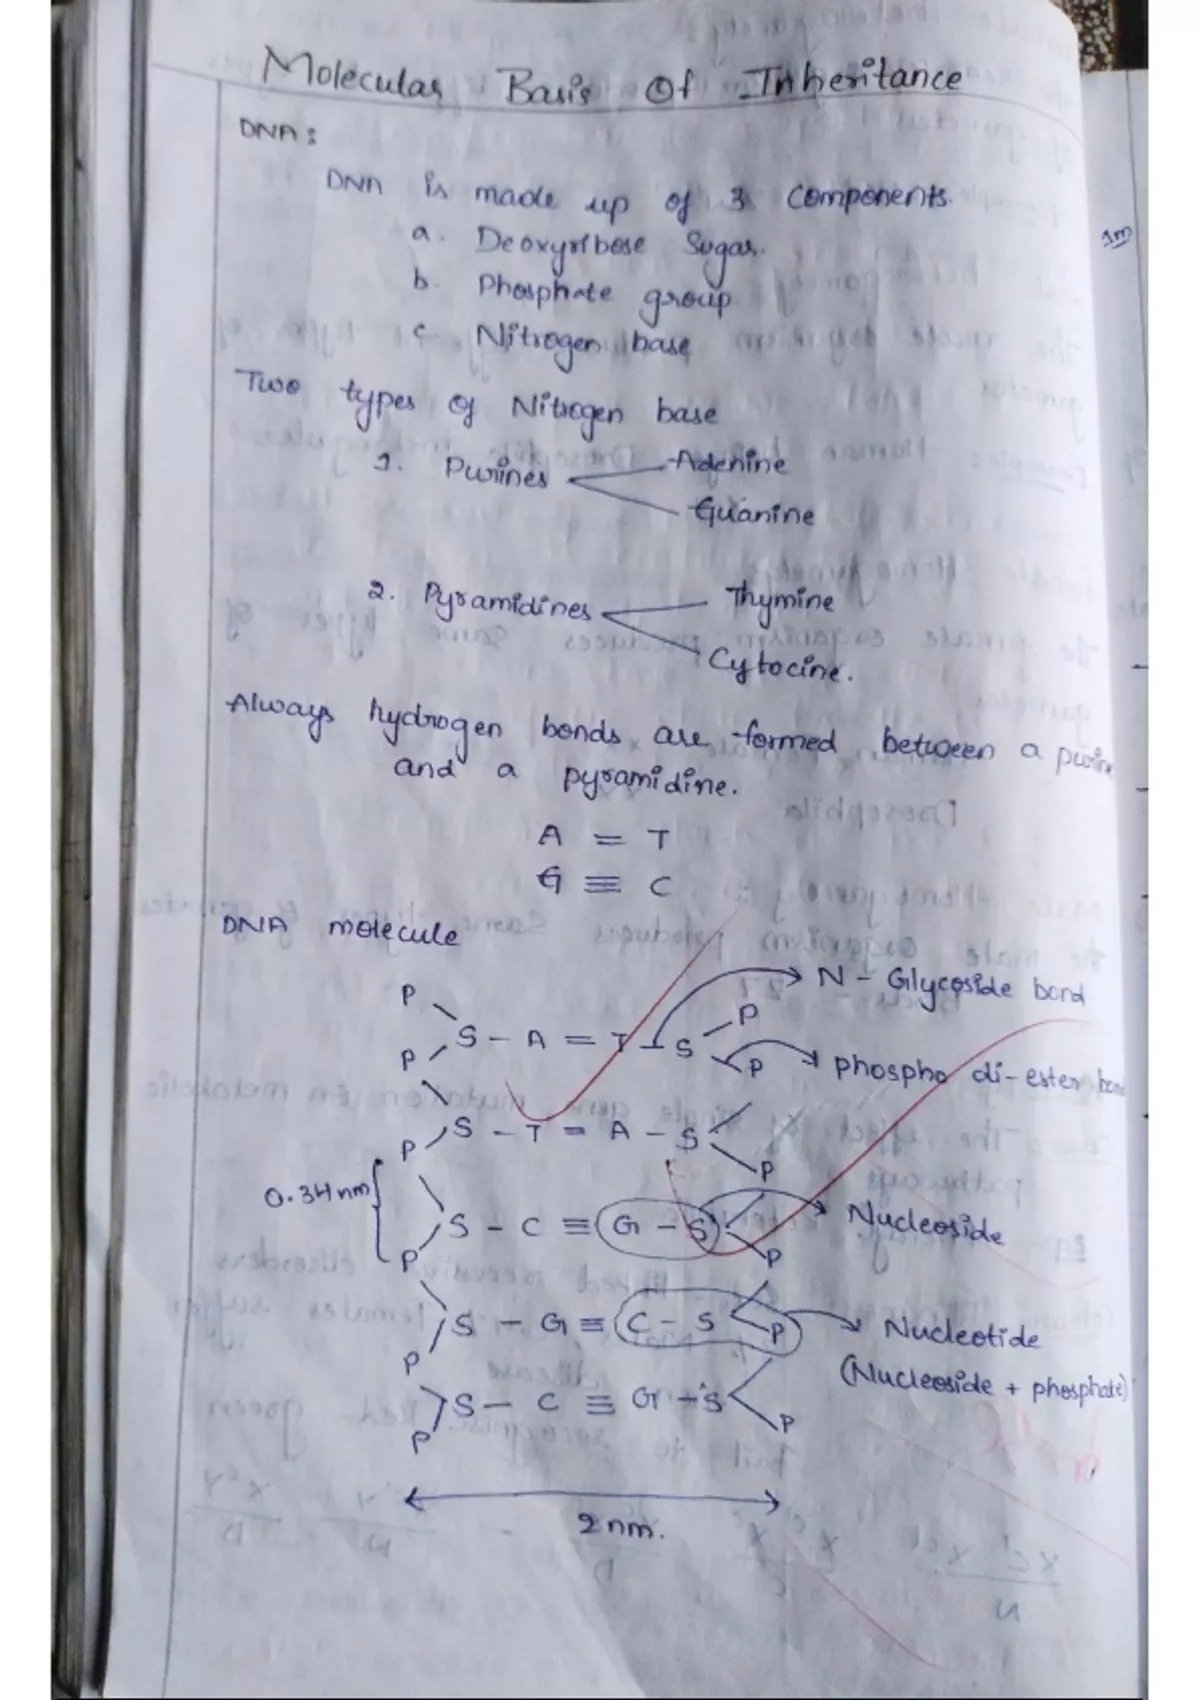 Molecular Basis Of Inheritance
DNA :
DNA is made up of 3 components.
a. Deoxyribose Sugar.
b. Phosphate group.
c. Nitrogen base
Two types of Nitrogen base
1. Purines
Adenine
Guanine
2. Pyramidines
Thymine
Cytocine.
Always hydrogen bonds are formed between a purine
and a pyramidine.
A = T
G ≡ C
DNA molecule
N - Glycoside bond
P
P
S - A = T - S
P
P
phospho di-ester bond
S - T = A - S
P
P
0.34 nm
S - C ≡ G - S
Nucleoside
P
P
S - G ≡ C - S
P
Nucleotide
P
(Nucleoside + phosphate)
S - C ≡ G - S
P
P
2 nm.
1m